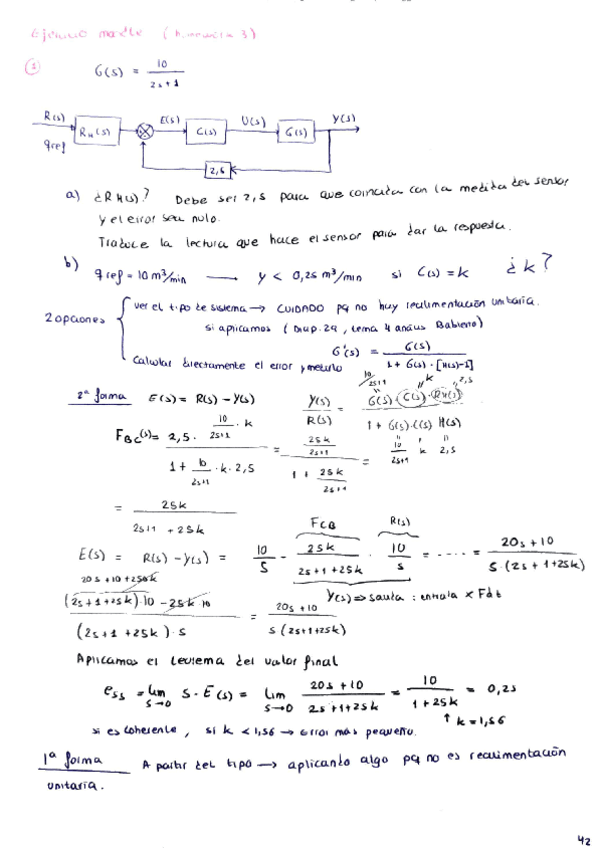 (1)
G(s) = 10 / (2s+1)
R(s) E(s) U(s) Y(s)
qref RH(s) C(s) G(s)
2,5
a) ¿RH(s)? Debe ser 2,5 para que coincida con la medida del sensor
y el error sea nulo.
Traduce la lectura que hace el sensor para dar la respuesta.
b) qref = 10 m³/min → y < 0,25 m³/min si C(s) = k ¿k?
2 opciones
ver el tipo de sistema → CUIDADO pq no hay realimentación unitaria.
si aplicamos (Diap. 29, tema 4
G'(s) = G(s) / (1 + G(s)·[H(s)-1])
Calcular directamente el error y meterlo
2ª forma E(s) = R(s) - Y(s)
Y(s)/R(s) = G(s)·C(s)·RH(s) / (1 + G(s)·C(s) H(s))
10/(2s+1) k 2,5
10/(2s+1) k 2,5
FBC(s) = 2,5 · 10/(2s+1) · k / (1 + 10/(2s+1) · k · 2,5) = 25k/(2s+1) / (1 + 25k/(2s+1)) =
= 25k / (2s+1 + 25k)
FCB R(s)
E(s) = R(s) - Y(s) = 10/s - 25k/(2s+1+25k) · 10/s = ---- = (20s+10) / (s·(2s+1+25k))
Y(s) ⇒ salida: entrada x Fdt
20s+10+250k
((2s+1+25k)·10 - 25k·10) / ((2s+1+25k)·s) = (20s+10) / (s(2s+1+25k))
Aplicamos el teorema del valor final
ess = lim s→0 S·E(s) = lim s→0 (20s+10)/(2s+1+25k) = 10/(1+25k) = 0,25
↑ k = 1,56
si es coherente, si k < 1,56 → error más pequeño.
1ª forma A partir del tipo → aplicando algo pq no es realimentación
unitaria.
42